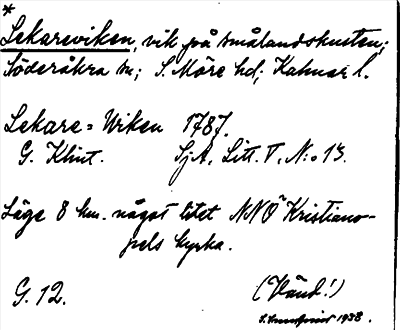 *
Lekareviken, vik på smålandskusten;
Söderåkra sn; S. Möre hd; Kalmar l.
Lekare=Wiken 1787.
G. Klint. SjA, Litt. T, N:o 13.
Läge 8 km. något litet NNO Kristiano-
pels kyrka.
G. 12. (Vänd!)
1938.